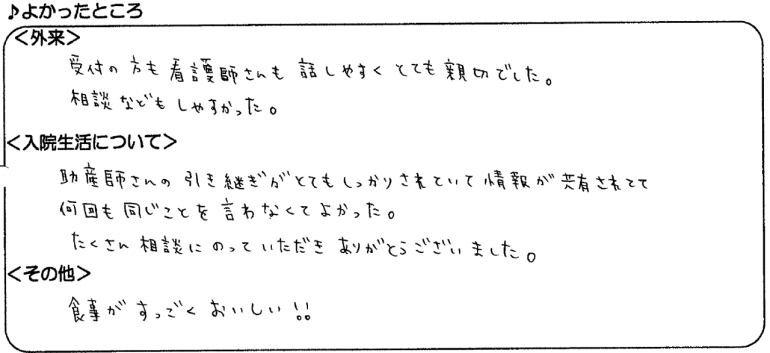 ♪よかったところ
<外来>
受付の方も看護師さんも 話しやすく とても 親切でした。
相談などもしやすかった。
<入院生活について>
助産師さんの 引き継ぎがとてもしっかりされていて 情報が共有されてて
何回も同じことを言わなくてよかった。
たくさん 相談にのっていただき ありがとうございました。
<その他>
食事が すっごく おいしい!!